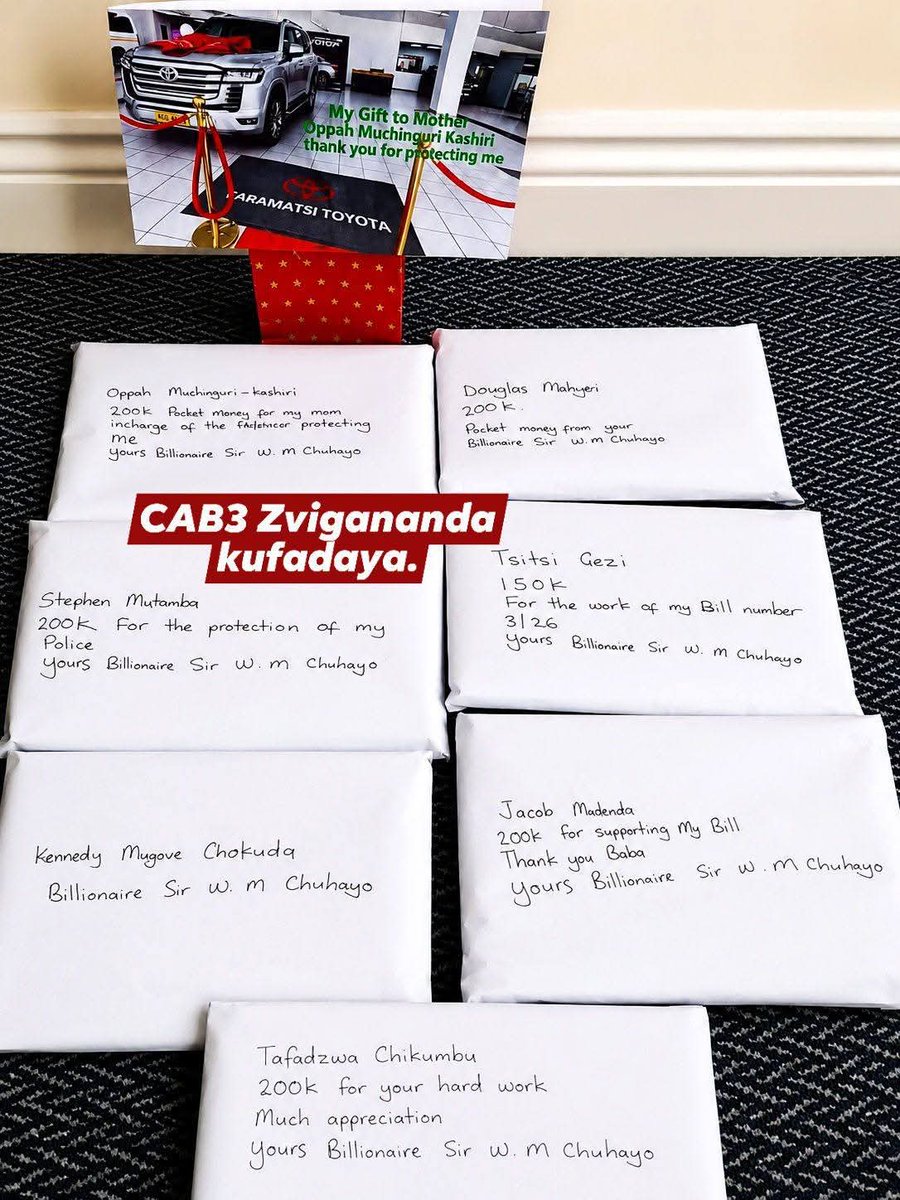 TOYOTA
My Gift to Mother
Oppah Muchinguri Kashiri
thank you for protecting me
FARAMATSI TOYOTA
Oppah Muchinguri-kashiri
200k Pocket money for my mom
incharge of the protecting
me
yours Billionaire Sir W. M Chuhayo
Douglas Mahyeri
200 k.
Pocket money from your
Billionaire Sir W. M Chuhayo
CAB3 Zvigananda
kufadaya.
Stephen Mutamba
200k For the protection of my
Police
yours Billionaire Sir W. M Chuhayo
Tsitsi Gezi
150K
For the work of my Bill number
3/26
yours Billionaire Sir W. M Chuhayo
Kennedy Mugove Chokuda
Billionaire Sir W. M Chuhayo
Jacob Madenda
200k for supporting My Bill
Thank you Baba
yours Billionaire Sir W. M Chuhayo
Tafadzwa Chikumbu
200k for your hard work
Much appreciation
yours Billionaire Sir W. M Chuhayo